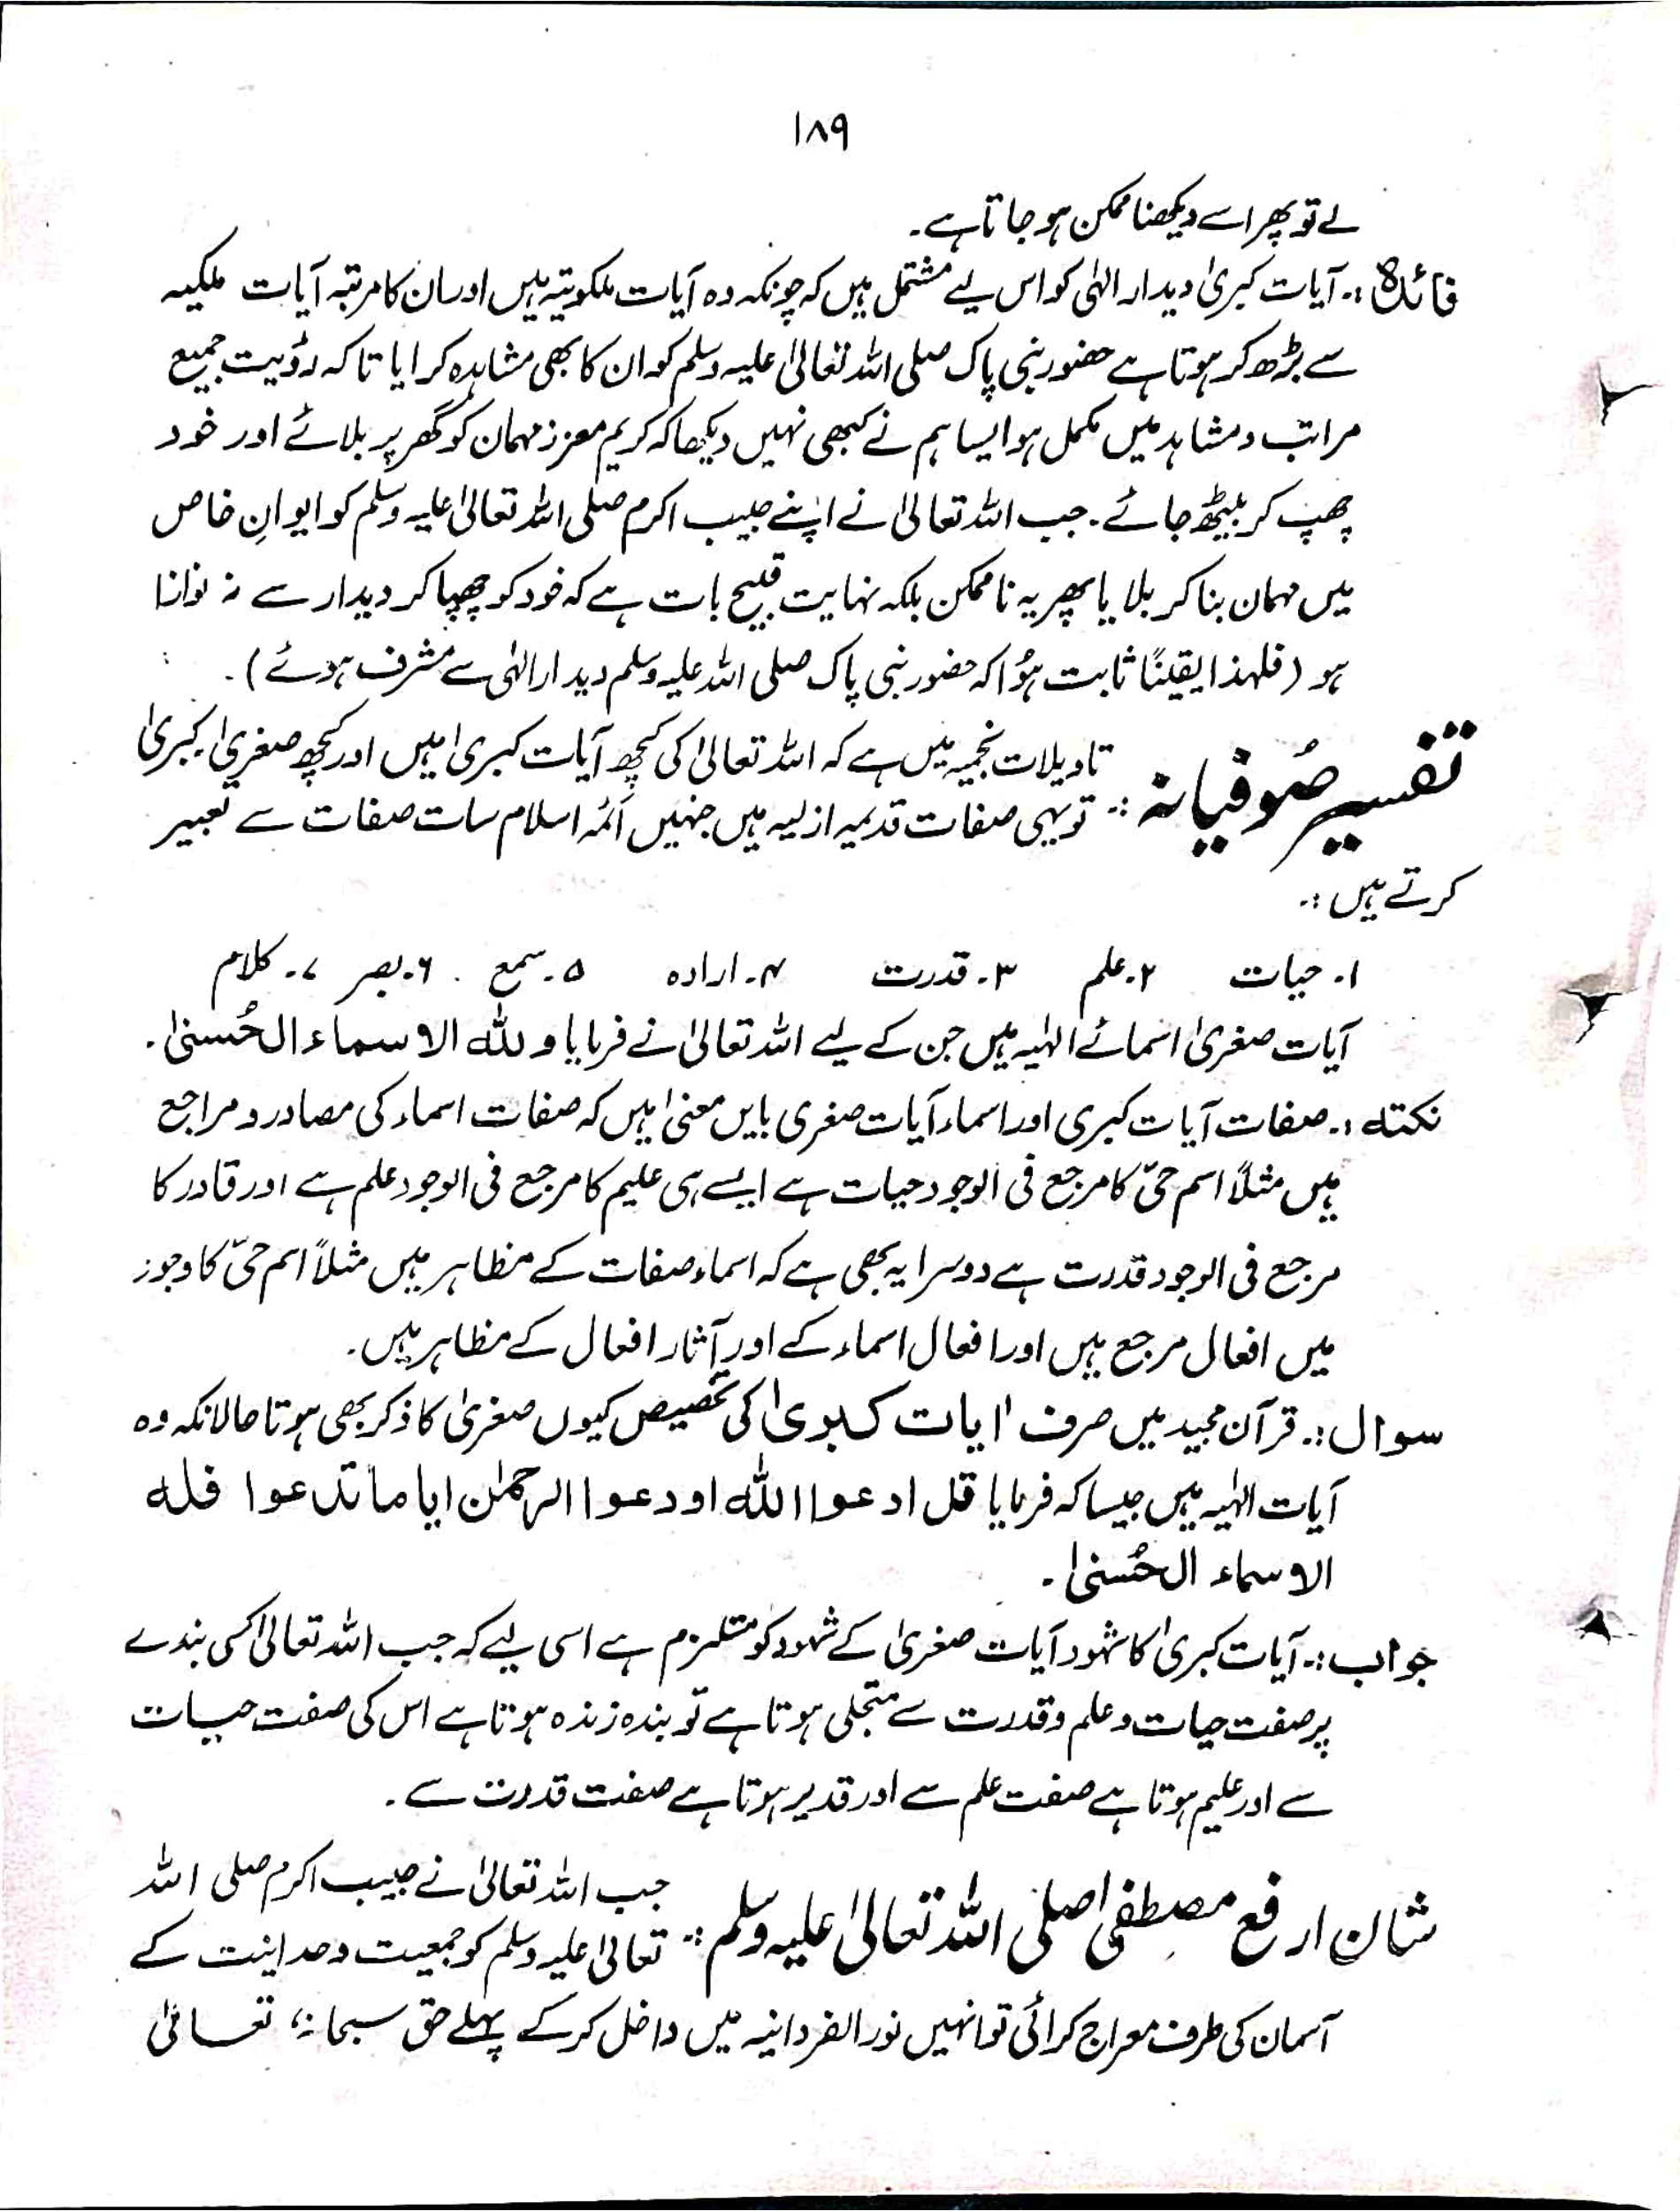 ۱۸۹
لے تو پھر اسے دیکھنا ممکن ہو جاتا ہے۔
فائدہ :۔ آیات کبریٰ دیدار الٰہی کو اس لیے مشتمل ہیں کہ چونکہ وہ آیات ملکوتیہ ہیں اور ان کا مرتبہ آیات ملکیہ
سے بڑھ کر ہوتا ہے حضور نبی پاک صلی اللہ تعالیٰ علیہ وسلم کو ان کا بھی مشاہدہ کرایا تاکہ رؤیت جمیع
مراتب و مشاہد میں مکمل ہو ایسا ہم نے کبھی نہیں دیکھا کہ کریم معزز مہمان کو گھر پر بلائے اور خود
چھپ کر بیٹھ جائے۔ جب اللہ تعالیٰ نے اپنے حبیب اکرم صلی اللہ تعالیٰ علیہ وسلم کو ایوانِ خاص
میں مہمان بنا کر بلایا پھر یہ ناممکن بلکہ نہایت قبیح بات ہے کہ خود کو چھپا کر دیدار سے نہ نوازا
ہو (فلہذا یقینًا ثابت ہُوا کہ حضور نبی پاک صلی اللہ علیہ وسلم دیدار الٰہی سے مشرف ہوئے)۔
تفسیر صُوفیانہ :۔ تاویلات نجمیہ میں ہے کہ اللہ تعالیٰ کی کچھ آیات کبریٰ ہیں اور کچھ صغریٰ۔ کبریٰ
تو یہی صفات قدیمہ ازلیہ ہیں جنہیں آئمہ اسلام سات صفات سے تعبیر
کرتے ہیں :۔
۱۔ حیات ۲۔ علم ۳۔ قدرت ۴۔ ارادہ ۵۔ سمع ۶۔ بصر ۷۔ کلام
آیات صغریٰ اسمائے الٰہیہ ہیں جن کے لیے اللہ تعالیٰ نے فرمایا وللہ الاسماء الحُسنیٰ۔
نکتہ :۔ صفات آیات کبری اور اسماء آیات صغری بایں معنیٰ ہیں کہ صفات اسماء کی مصادر و مراجع
ہیں مثلاً اسم حیّ کا مرجع فی الوجود حیات ہے ایسے ہی علیم کا مرجع فی الوجود علم ہے اور قادر کا
مرجع فی الوجود قدرت ہے دوسرا یہ بھی ہے کہ اسماء صفات کے مظاہر ہیں مثلاً اسم حیّ کا وجود
میں افعال مرجع ہیں اور افعال اسماء کے اور آثار افعال کے مظاہر ہیں۔
سوال :۔ قرآن مجید میں صرف اٰیات کبریٰ کی تخصیص کیوں صغریٰ کا ذکر بھی ہوتا حالانکہ وہ
آیات الٰہیہ ہیں جیسا کہ فرمایا قل ادعوا اللہ اودعوا الرحمٰن ایاما تدعوا فلہ
الاسماء الحُسنیٰ۔
جواب :۔ آیات کبریٰ کا شہود آیات صغریٰ کے شہود کو مستلزم ہے اسی لیے کہ جب اللہ تعالیٰ کسی بندے
پر صفت حیات و علم و قدرت سے متجلی ہوتا ہے تو بندہ زندہ ہوتا ہے اس کی صفت حیات
سے اور علیم ہوتا ہے صفت علم سے اور قدیر ہوتا ہے صفت قدرت سے۔
شان ارفع مصطفیٰ صلی اللہ تعالیٰ علیہ وسلم :۔ جب اللہ تعالیٰ نے حبیب اکرم صلی اللہ
تعالیٰ علیہ وسلم کو جمعیت وحدانیت کے
آسمان کی طرف معراج کرائی تو انہیں نور الفردانیہ میں داخل کر کے پہلے حق سبحانہٗ تعالیٰ